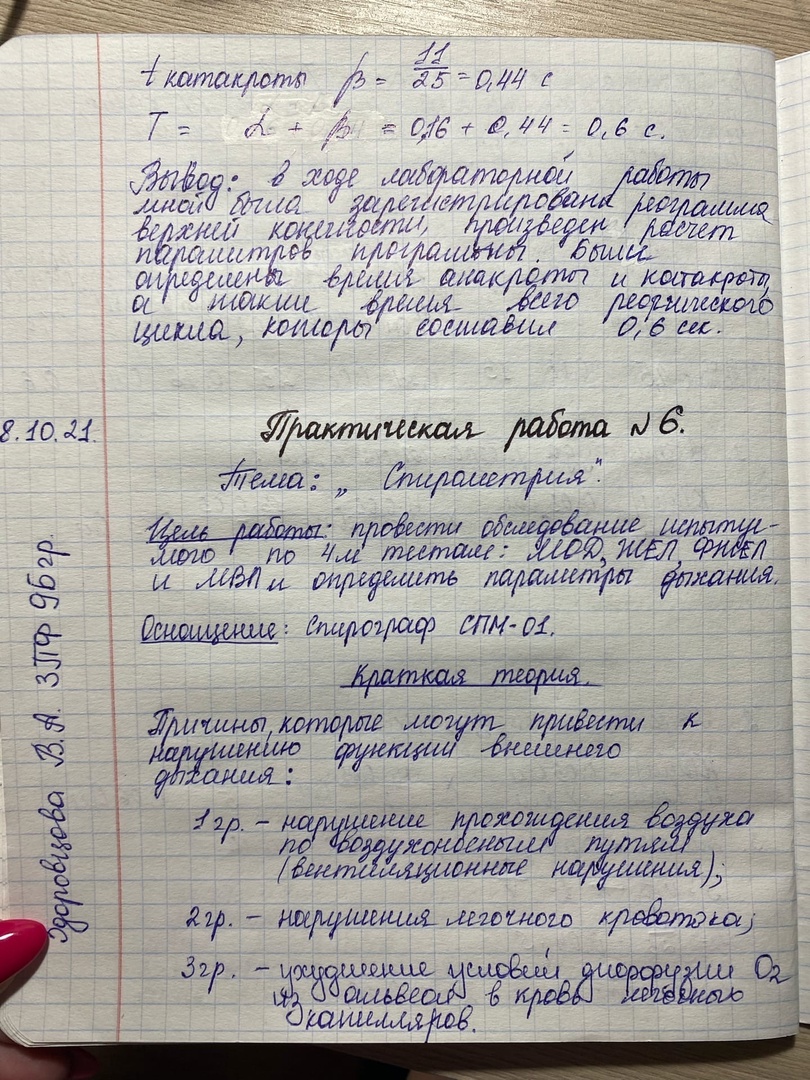 t катакроты β = 11/25 = 0,44 с
T = α + β = 0,16 + 0,44 = 0,6 с.
Вывод: в ходе лабораторной работы
мной была зарегистрирована реограмма
верхней конечности, произведен расчет
параметров програмоны. Были
определены время анакроты и катакроты,
а также время всего реографического
цикла, которы составил 0,6 сек.
8.10.21.
Практическая работа №6.
Тема: „Спирометрия".
Цель работы: провести обследование испытуе-
мого по 4м тестам: МОД, ЖЕЛ, ФЖЕЛ
и МВЛ и определить параметры дыхания.
Оснащение: Спирограф СПМ-01.
Краткая теория.
Причины, которые могут привести к
нарушению функции внешнего
дыхания:
1гр. – нарушение прохождения воздуха
по воздухоносным путям
(вентиляционные нарушения);
2гр. – нарушения легочного кровотока;
3гр. – ухудшение условий диффузии O2
из альвеол в кровь легочных
капилляров.
Здоровцова В.А. 3ПФ 9Б гр.